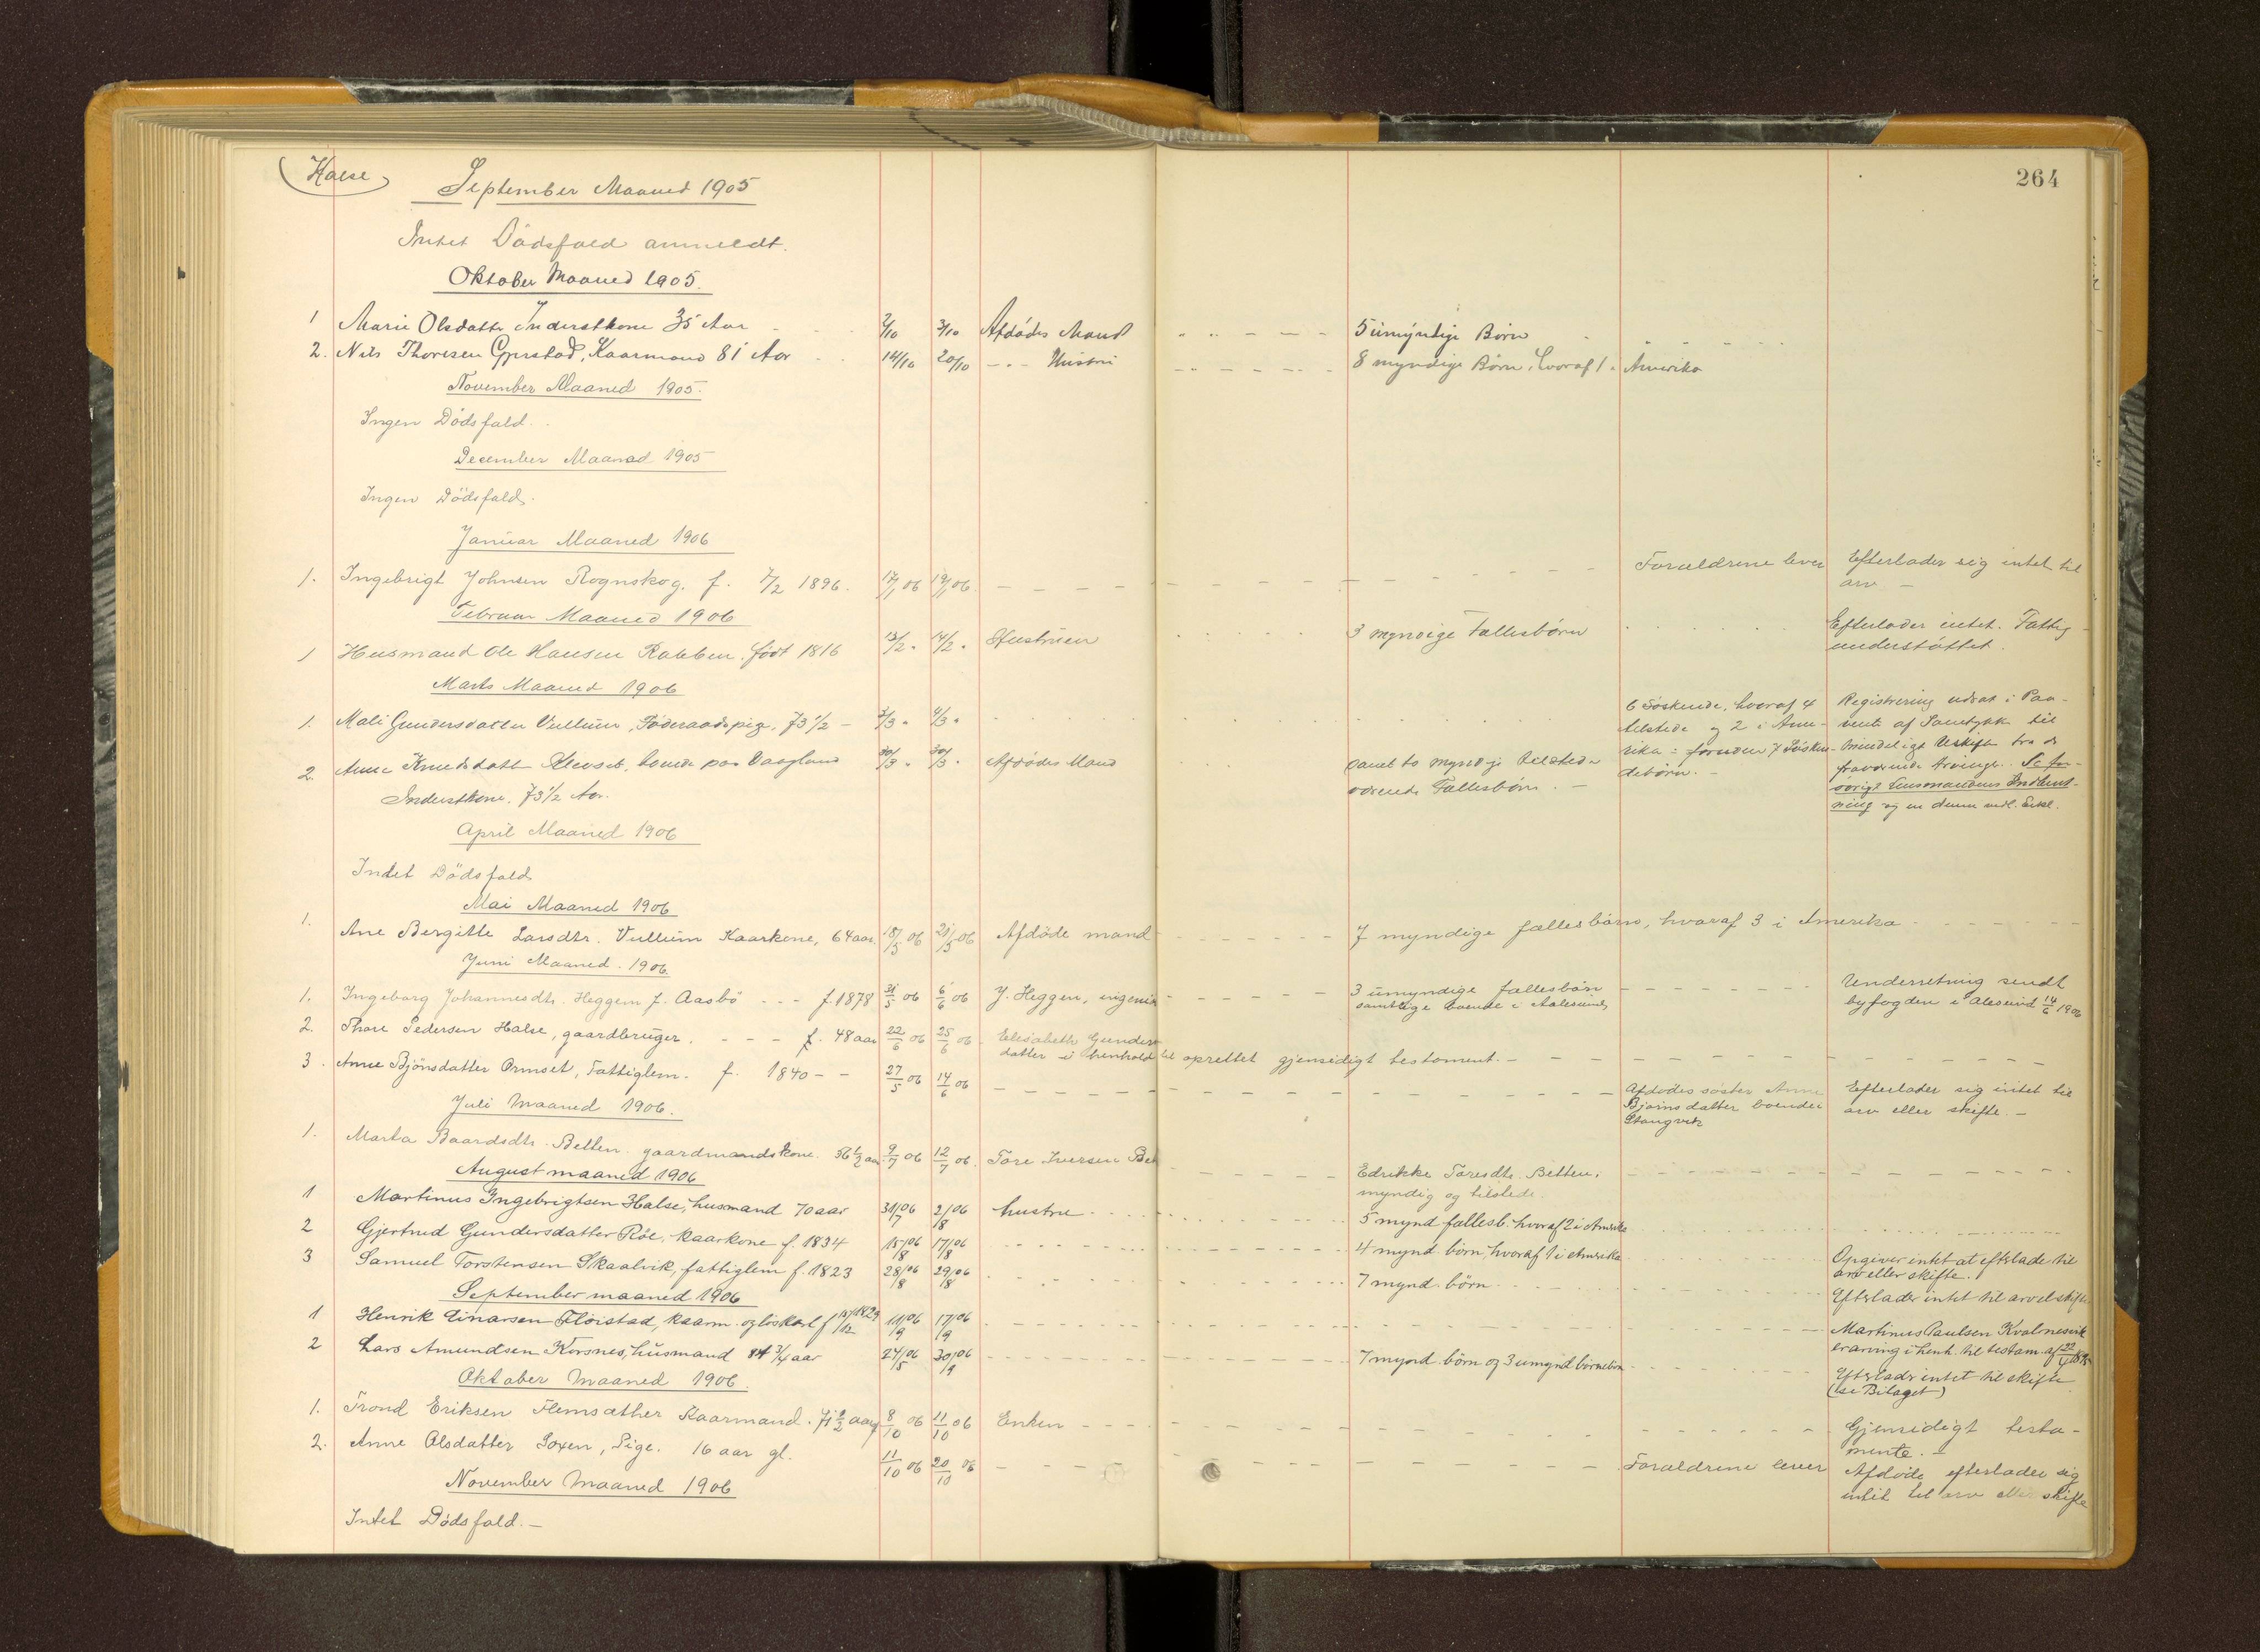 Halse
264
September Maaned 1905
Intet Dödsfald anmeldt.
Oktober Maaned 1905.
1 Marie Olsdatter Inderstkone 35 Aar 2/10 3/10 Afdödes Mand 5 umyndige Börn
2. Nils Thoresen Gjerstad, Kaarmand 81 Aar 14/10 20/10 — " — Hustru 8 myndige Börn, hvoraf 1 i Amerika
November Maaned 1905.
Ingen Dödsfald.
December Maaned 1905
Ingen Dödsfald.
Januar Maaned 1906
1. Ingebrigt Johnsen Rognskog, f. 7/2 1896. 17/1 06 19/1 06. Foraeldrene lever Efterlader sig intet til
arv —
Februar Maaned 1906
1 Husmand Ole Hansen Rabben, födt 1816 13/2 " 14/2 " Hustruen 3 myndige Fællesbörn Efterlader intet. Fattig-
understöttet.
Marts Maaned 1906
1. Mali Gundersdatter Vullum, Föderaadspige, 73 1/2 — 3/3 " 4/3 " 6 Söskende, hvoraf 4
tilstede og 2 i Ame-
rika : foruden 7 Sösken-
debörn. —
Registrering udsat i Paa-
vente af Samtykke til
mindeligt Udskifte fra de
fraværende Arvinger. Se for-
övrigt Lensmandens Indberet-
ning og en denne vedl. Erkl.
2. Anne Knudsdatter boende paa Vaagland 30/3 " 30/3 " Afdödes Mand to myndige tilstede-
Inderstkone. 73 1/2 Aar. værende Fællesbörn. —
April Maaned 1906
Intet Dödsfald
Mai Maaned 1906
1. Ane Bergitte Larsdtr. Vullum Kaarkone, 64 aar. 18/5 06 21/5 06 Afdöde mand 7 myndige fællesbörn, hvoraf 3 i Amerika
Juni Maaned. 1906.
1. Ingeborg Johannesdtr. Heggem f. Aasbö - - - f. 1878 31/5 06 6/6 06 J. Heggem, ingeniör 3 umyndige fællesbörn
samtlige boende i Aalesund,
Underretning sendt
byfogden i Alesund 14/6 1906
2. Thore Pedersen Halse, gaardbruger. - - - f. 48 aar 22/6 06 25/6 06 Elisabeth Gunders-
datter i henhold til oprettet gjensidigt testament. —
3. Anne Bjönsdatter Ormset, Fattiglem. f. 1840 - - 27/5 06 14/6 06 Afdödes söster Anne
Bjørnsdatter boende i
Stangvik
Efterlader sig intet til
arv eller skifte. —
Juli Maaned 1906.
1. Marta Baardsdtr. Betten gaardmandskone. 56 1/2 aar 9/7 06 12/7 06. Tore Iversen Bet Edrikke Toresdtr. Betten,
myndig og tilstede
August maaned 1906
1 Martinus Ingebrigtsen Halse, husmand 70 aar 31/7 06 2/8 06 hustru 5 mynd fællesb. hvoraf 2 i Amerika
2 Gjertrud Gundersdatter Röe, kaarkone f. 1834 15/8 06 17/8 06 4 mynd börn, hvoraf 1 i Amerika Opgiver intet at efterlade til
arv eller skifte.
3 Samuel Torstensen Skaalvik, fattiglem f. 1823 28/8 06 29/8 06 7 mynd. börn Efterlader intet til arv el skifte
September maaned 1906
1 Henrik Einarsen Fløistad, kaarm. og löskarl f. 15/12 1829 11/9 06 17/9 06 Martinus Paulsen Kvalnesvik
er arving i henh. til testam. af
2 Lars Amundsen Korsnes, husmand 84 3/4 aar 24/5 06 30/9 06 7 mynd. börn og 3 umynd börnebörn Efterlader intet til skifte
(se Bilaget)
Oktober Maaned 1906.
1. Trond Eriksen Flemsæther Kaarmand. 71 1/2 aar 8/10 06 11/10 06 Enken Gjensidigt testa-
mente. —
2. Anne Olsdatter Boxen, Pige. 16 aar gl. 11/10 06 20/10 06 Foraeldrene lever Afdöde efterlader sig
intet til arv eller skifte
November Maaned 1906
Intet Dödsfald. —